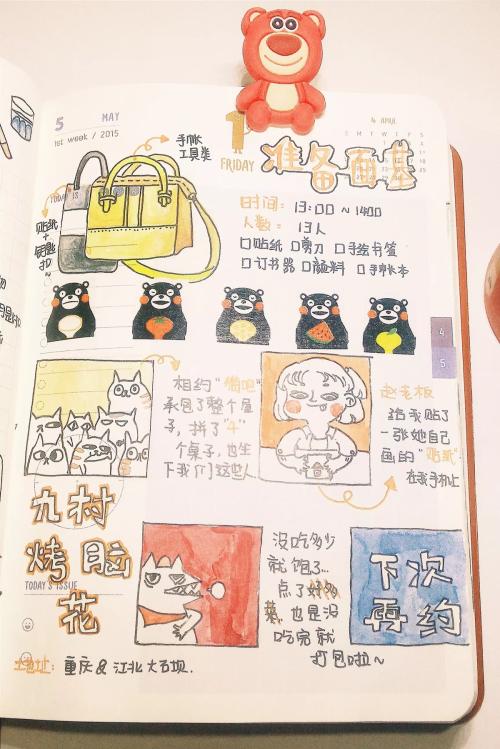 5 MAY
1st week / 2015
手帐
工具类
1
FRIDAY
4 APRIL
S M T W T F S
准备面基
时间: 13:00 ~ 1400
人数: 13人
口贴纸 口剪刀 口手绘书签
口订书器 口颜料 口手帐本
TODAY IS
贴纸
+
4
5
相约"猫吧"
承包了整个屋
子,拼了"4"
个桌子,也坐
下我们这些人
赵老板
给我贴了
一张她自己
画的"贴纸"
在我手机上
九村
烤脑
花
TODAY'S ISSUE
没吃多少
就饱了...
点了好多
菜 也是没
吃完就
打包啦~
下次
再约
地址: 重庆&江北大石坝.